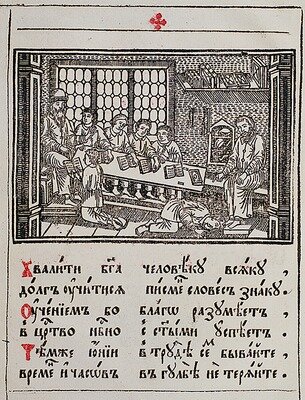 Хвалити бг҃а человѣку всѧку ,
долгъ оучитисѧ писмѐ словесъ знаку .
Оученїемъ бо благо разумѣетъ ,
в црⷭ҇тво нб҃но с ст҃ыми успѣетъ .
Тѣмже юнїи в трудѣ сеⷨ бывайте ,
времѧ и часѡвъ въ гулбѣ не терѧйте .